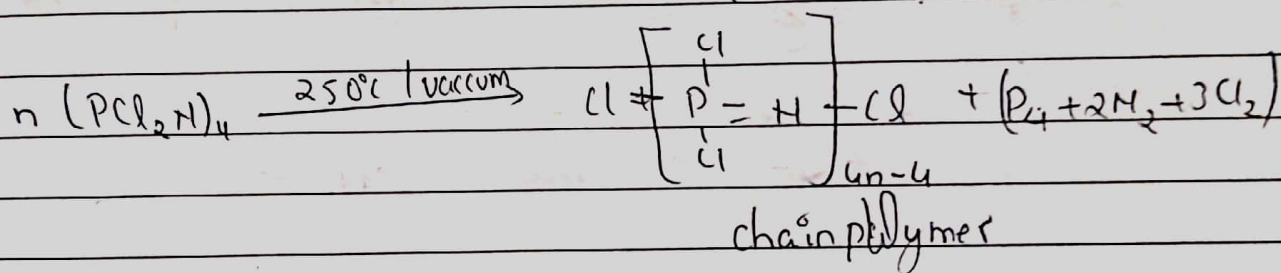 n (PCl₂N)₄ 250°C / vaccum → Cl ＋[ Cl | P = N | Cl ]₄ₙ₋₄ — Cl + (P₄ + 2N₂ + 3Cl₂)
chain polymer